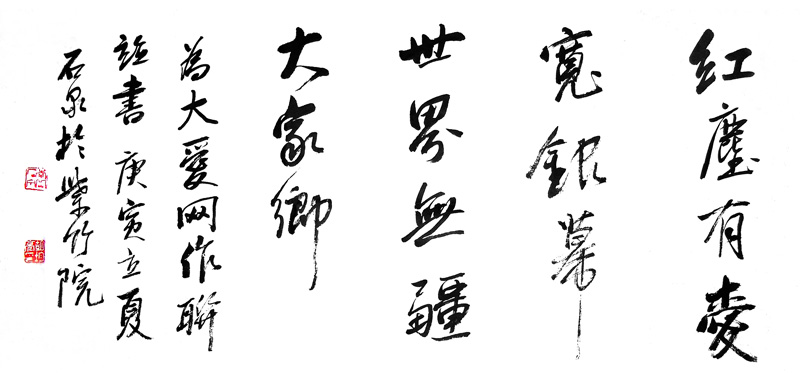 紅塵有愛
寬銀幕
世界無疆
大家鄉
為大愛网作聯
誌書 庚寅立夏
石泉於紫竹院